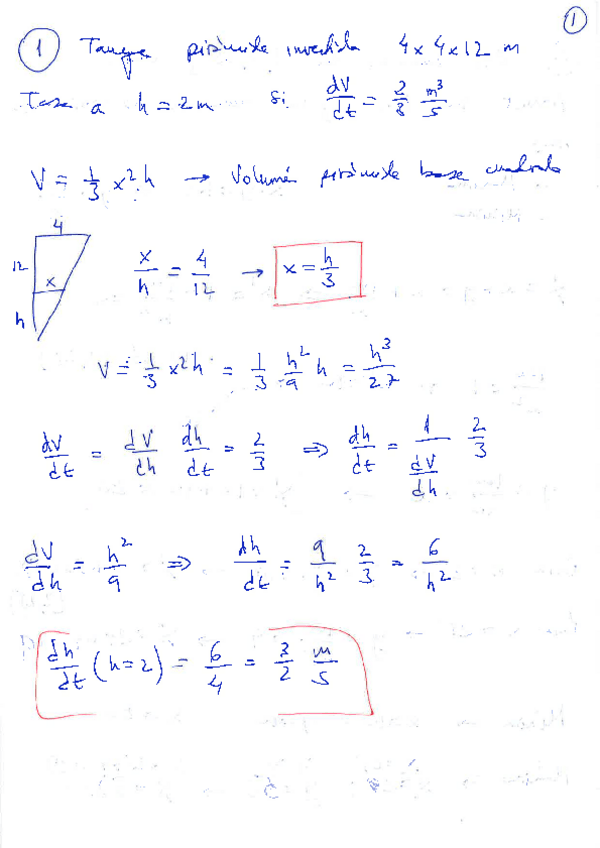 1
1 Tanque pirámide invertida 4x4x12 m
Tasa a h = 2m si dV/dt = 2/3 m³/s
V = 1/3 x² h → Volumen pirámide base cuadrada
4
12
x
h
x/h = 4/12 → x = h/3
V = 1/3 x² h = 1/3 h²/9 h = h³/27
dV/dt = dV/dh dh/dt = 2/3 ⇒ dh/dt = 1/(dV/dh) 2/3
dV/dh = h²/9 ⇒ dh/dt = 9/h² 2/3 = 6/h²
dh/dt (h=2) = 6/4 = 3/2 m/s